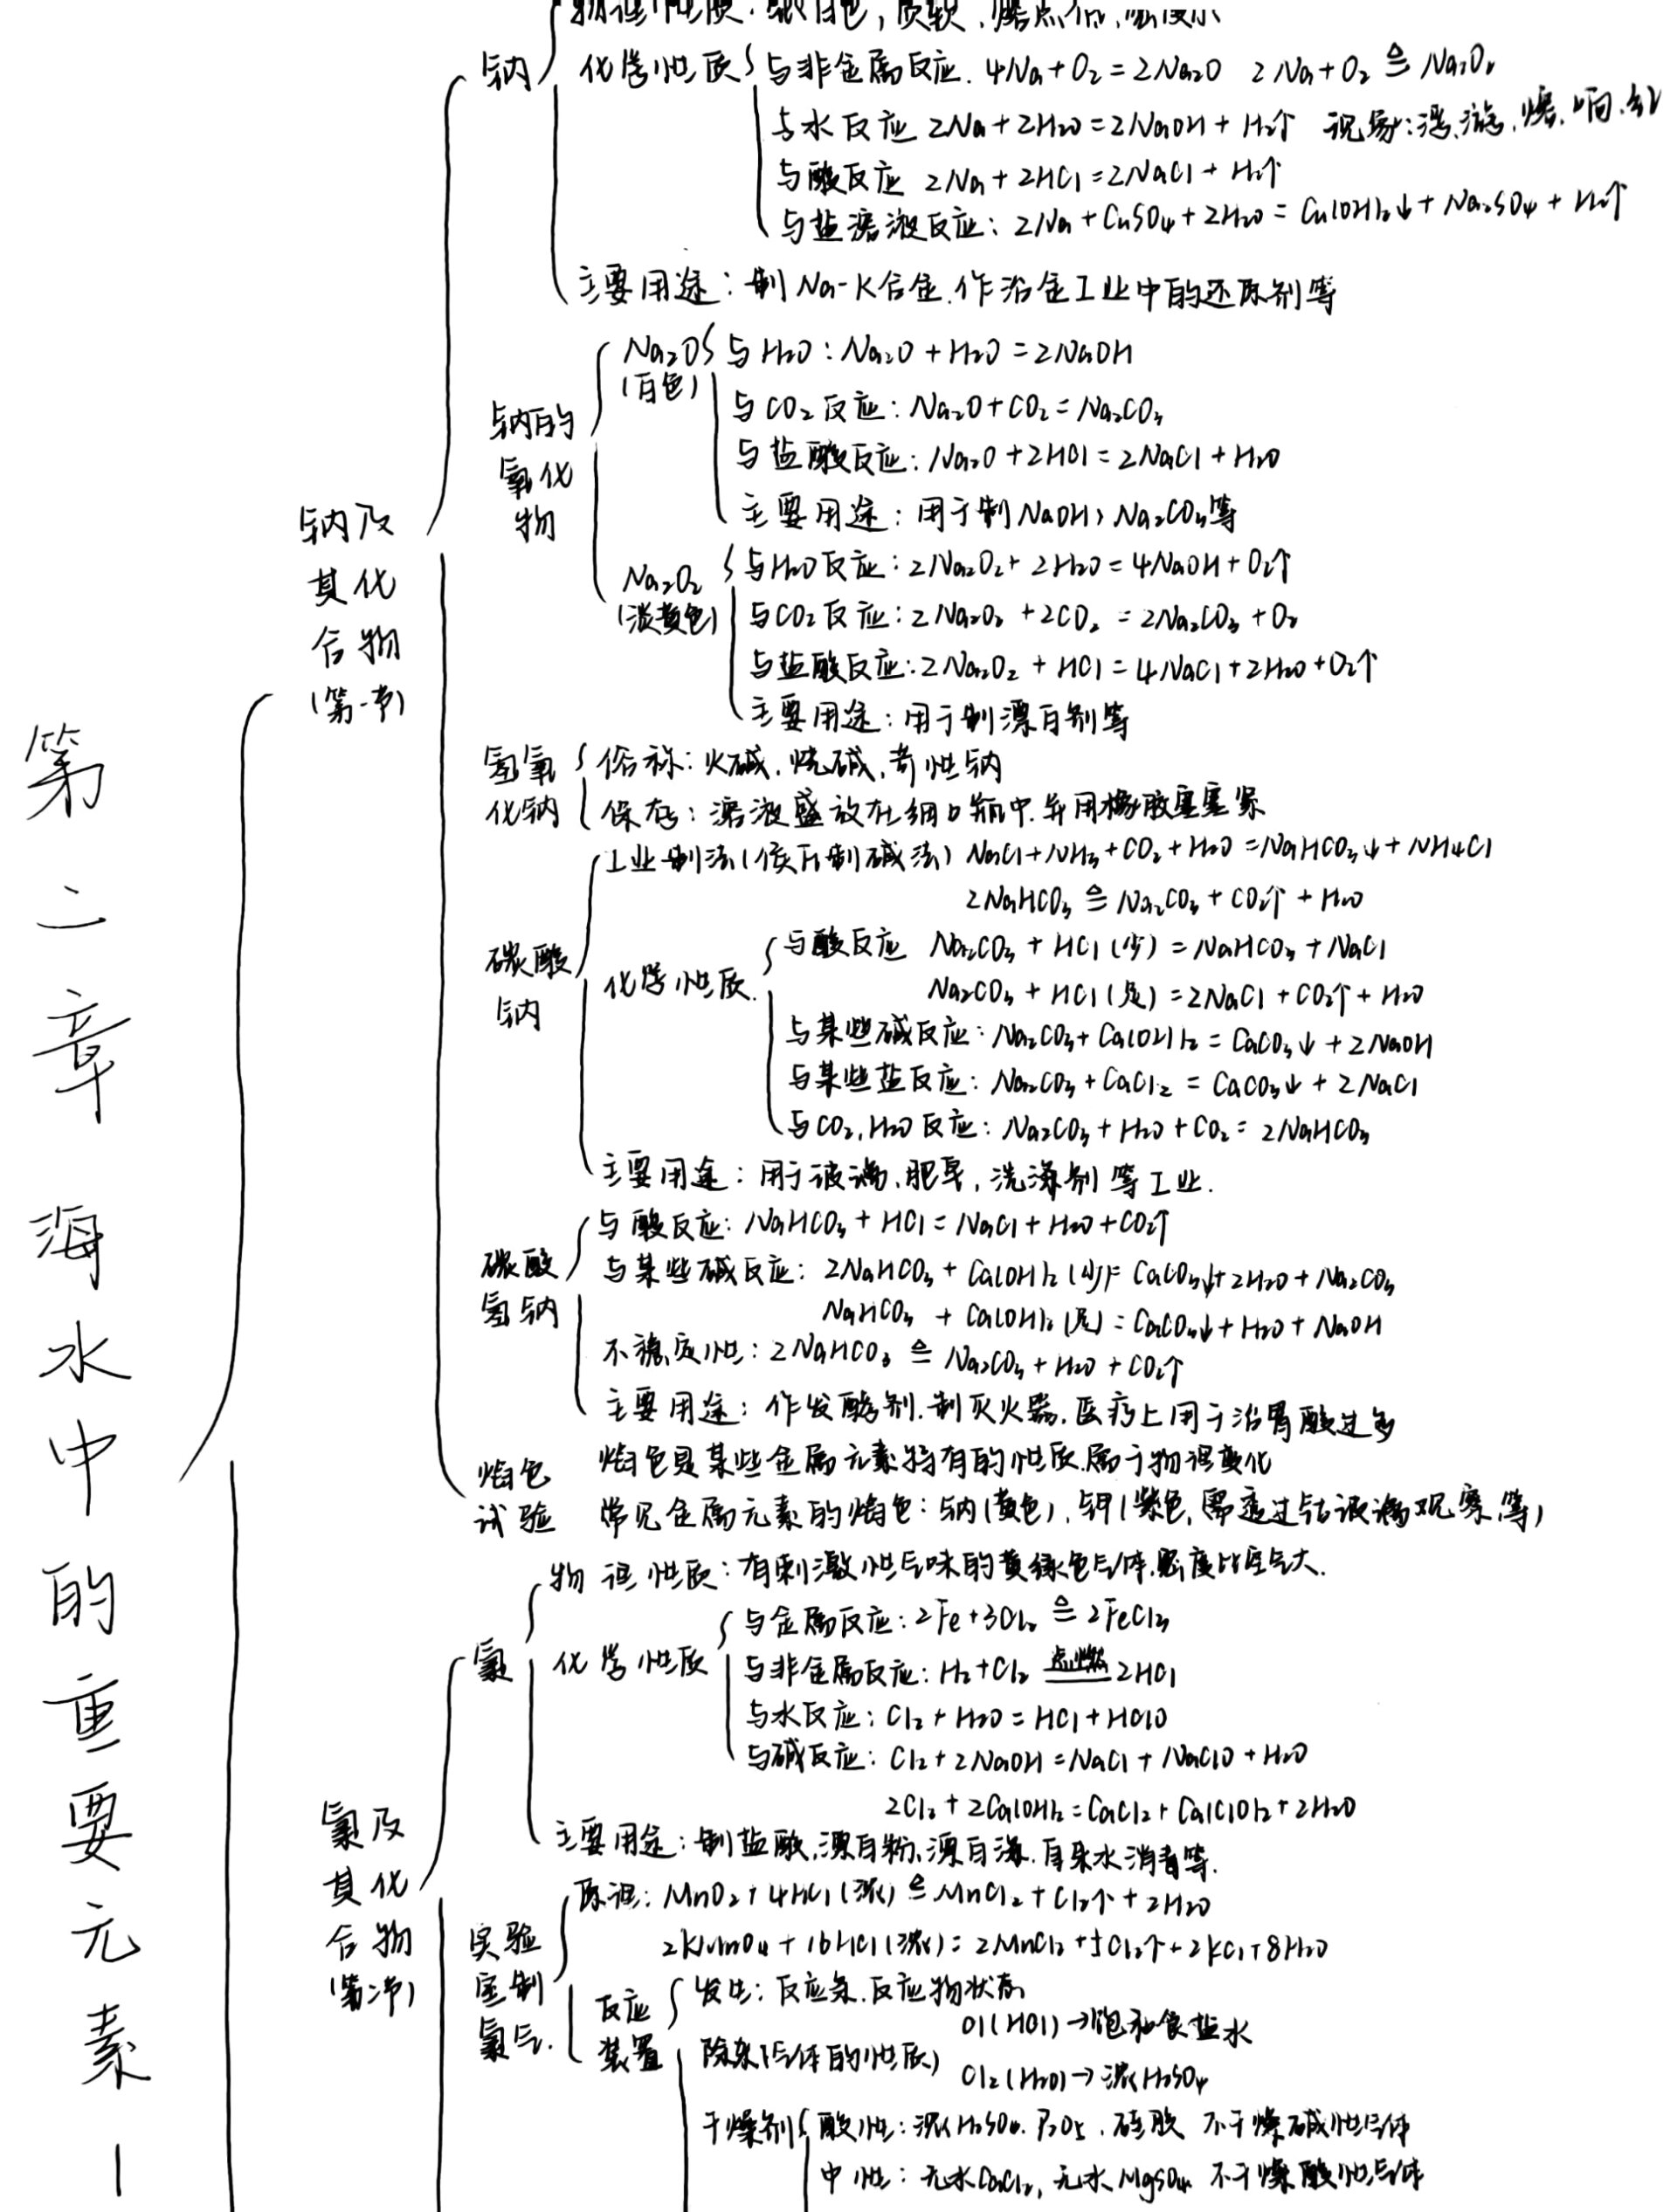 物理性质：银白色，质软，熔点低，密度小
钠
化学性质
与非金属反应. 4Na+O₂=2Na₂O 2Na+O₂≜Na₂O₂
与水反应 2Na+2H₂O=2NaOH+H₂↑ 现象:浮、游、熔、响、红
与酸反应 2Na+2HCl=2NaCl+H₂↑
与盐溶液反应：2Na+CuSO₄+2H₂O=Cu(OH)₂↓+Na₂SO₄+H₂↑
主要用途：制Na-K合金.作冶金工业中的还原剂等
钠的
氧化
物
Na₂O
(白色)
与H₂O：Na₂O+H₂O=2NaOH
与CO₂反应：Na₂O+CO₂=Na₂CO₃
与盐酸反应：Na₂O+2HCl=2NaCl+H₂O
主要用途：用于制NaOH、Na₂CO₃等
Na₂O₂
(淡黄色)
与H₂O反应：2Na₂O₂+2H₂O=4NaOH+O₂↑
与CO₂反应：2Na₂O₂+2CO₂=2Na₂CO₃+O₂
与盐酸反应：2Na₂O₂+HCl=4NaCl+2H₂O+O₂↑
主要用途：用于制漂白剂等
钠及
其化
合物
(第一节)
氢氧
化钠
俗称：火碱.烧碱.苛性钠
保存：溶液盛放在细口瓶中.并用橡胶塞塞紧
碳酸
钠
工业制法(侯氏制碱法) NaCl+NH₃+CO₂+H₂O=NaHCO₃↓+NH₄Cl
2NaHCO₃≜Na₂CO₃+CO₂↑+H₂O
化学性质.
与酸反应 Na₂CO₃+HCl(少)=NaHCO₃+NaCl
Na₂CO₃+HCl(足)=2NaCl+CO₂↑+H₂O
与某些碱反应：Na₂CO₃+Ca(OH)₂=CaCO₃↓+2NaOH
与某些盐反应：Na₂CO₃+CaCl₂=CaCO₃↓+2NaCl
与CO₂,H₂O反应：Na₂CO₃+H₂O+CO₂=2NaHCO₃
主要用途：用于玻璃、肥皂，洗涤剂等工业.
碳酸
氢钠
与酸反应：NaHCO₃+HCl=NaCl+H₂O+CO₂↑
与某些碱反应：2NaHCO₃+Ca(OH)₂(少)=CaCO₃↓+2H₂O+Na₂CO₃
NaHCO₃+Ca(OH)₂(足)=CaCO₃↓+H₂O+NaOH
不稳定性：2NaHCO₃≜Na₂CO₃+H₂O+CO₂↑
主要用途：作发酵剂.制灭火器.医疗上用于治胃酸过多
焰色
试验
焰色是某些金属元素特有的性质.属于物理变化
常见金属元素的焰色：钠(黄色)，钾(紫色，需透过钴玻璃观察，等)
第二章 海水中的重要元素一
氯及
其化
合物
(第二节)
氯
物理性质：有刺激性气味的黄绿色气体.密度比空气大.
化学性质
与金属反应：2Fe+3Cl₂≜2FeCl₃
与非金属反应：H₂+Cl₂ 点燃 2HCl
与水反应：Cl₂+H₂O=HCl+HClO
与碱反应：Cl₂+2NaOH=NaCl+NaClO+H₂O
2Cl₂+2Ca(OH)₂=CaCl₂+Ca(ClO)₂+2H₂O
主要用途：制盐酸、漂白粉、漂白液.自来水消毒等.
实验
室制
氯气.
原理：MnO₂+4HCl(浓)≜MnCl₂+Cl₂↑+2H₂O
2KMnO₄+16HCl(浓)=2MnCl₂+5Cl₂↑+2KCl+8H₂O
反应
装置
发生：反应条.反应物状态
除杂(气体的性质)
Cl(HCl)→饱和食盐水
Cl₂(H₂O)→浓H₂SO₄
干燥剂
酸性：浓H₂SO₄. P₂O₅. 硅胶 不干燥碱性气体
中性：无水CaCl₂，无水MgSO₄ 不干燥酸性气体